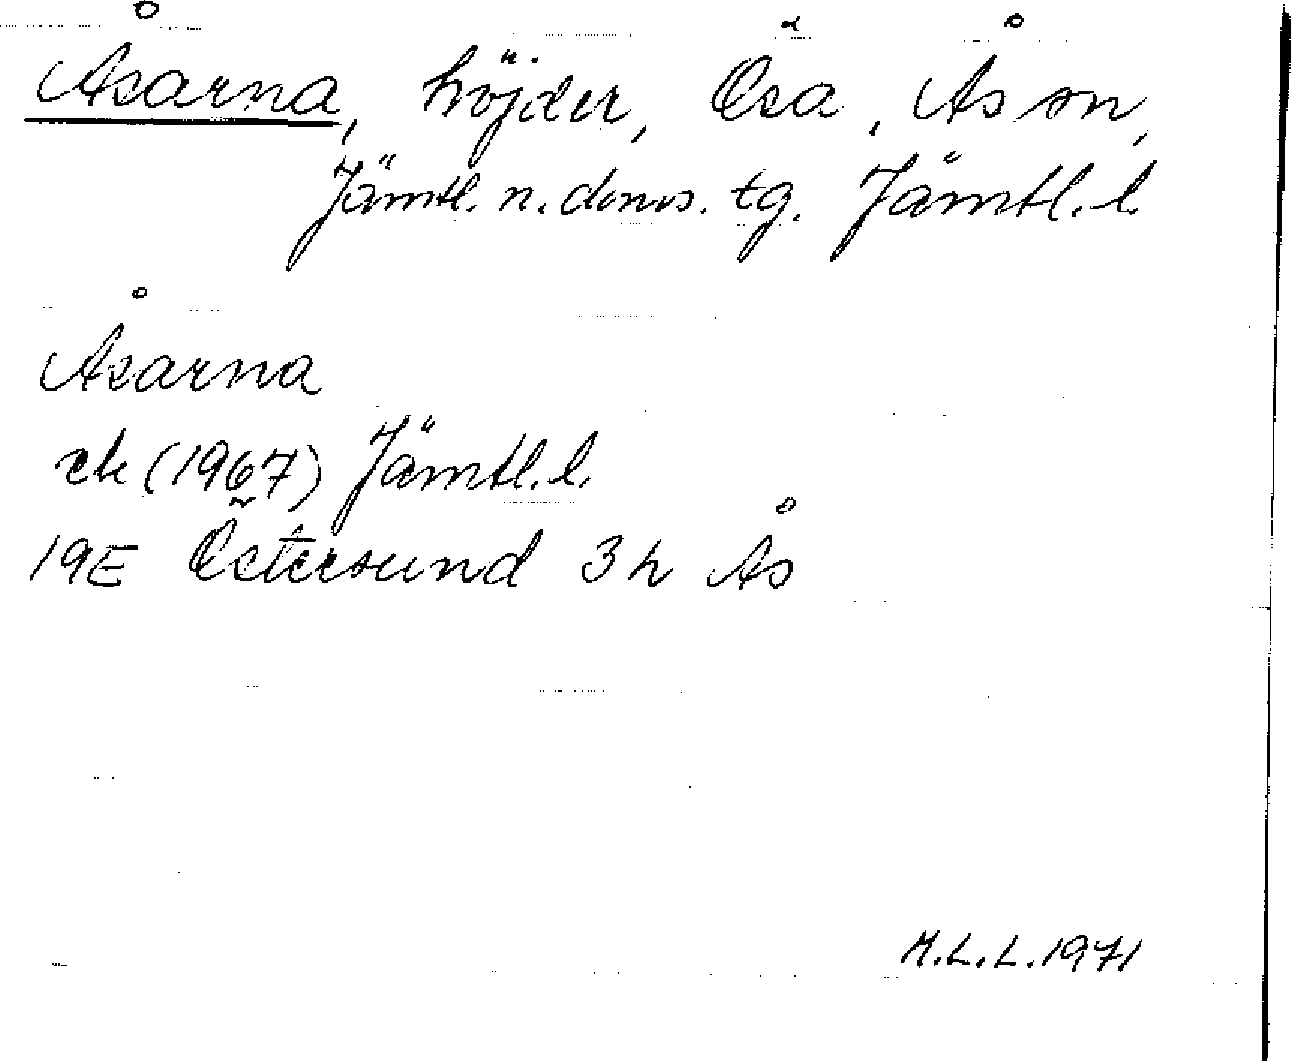 Åsarna, höjder, Ösa, Ås sn,
Jämtl. n. doms. tg. Jämtl. l.
Åsarna
ek (1967) Jämtl. l.
19E Östersund 3h Ås
M.L.L. 1971